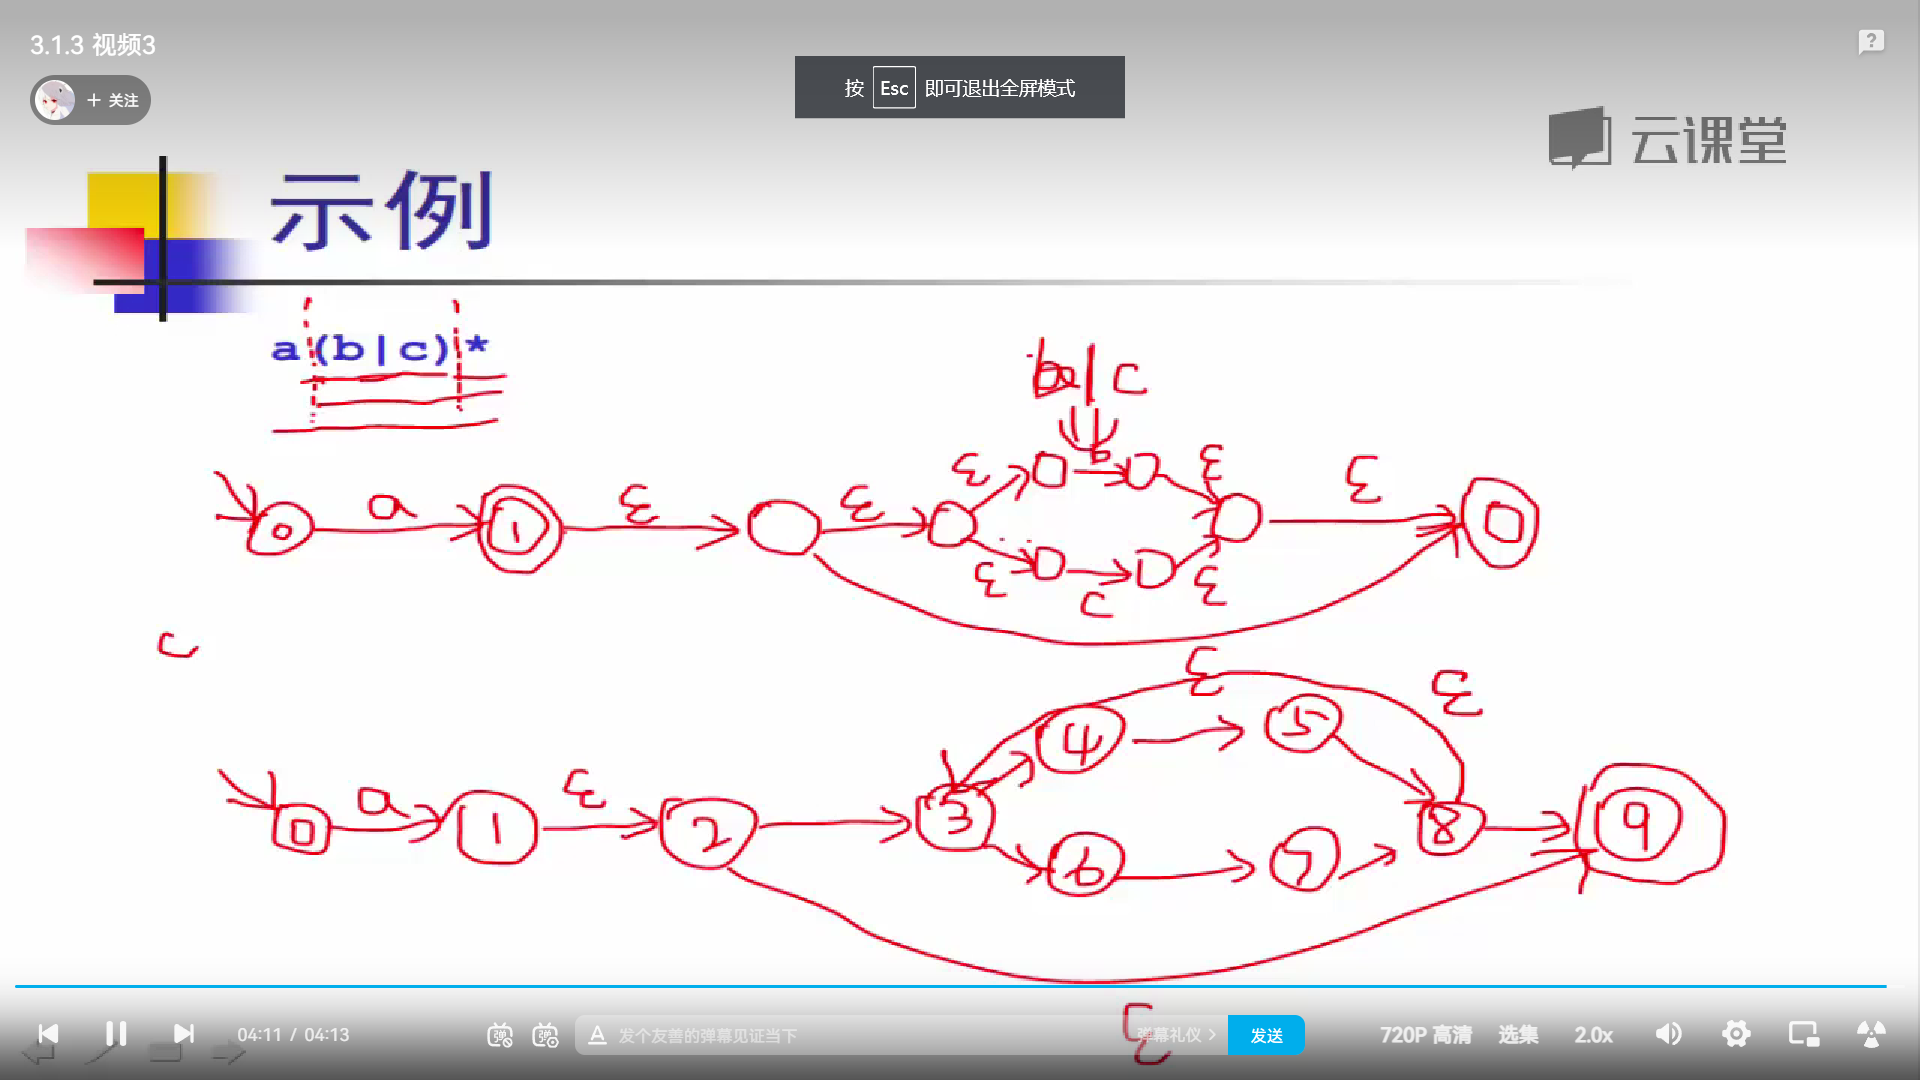 3.1.3 视频3
+ 关注
按 Esc 即可退出全屏模式
云课堂
示例
a(b|c)*
b|c
0 a 1 ε ε ε b ε ε
ε c ε
c
ε ε
0 a 1 ε 2 3 4 5 8 9
6 7
ε
04:11 / 04:13
弹 弹 A 发个友善的弹幕见证当下 弹幕礼仪 > 发送
720P 高清 选集 2.0x